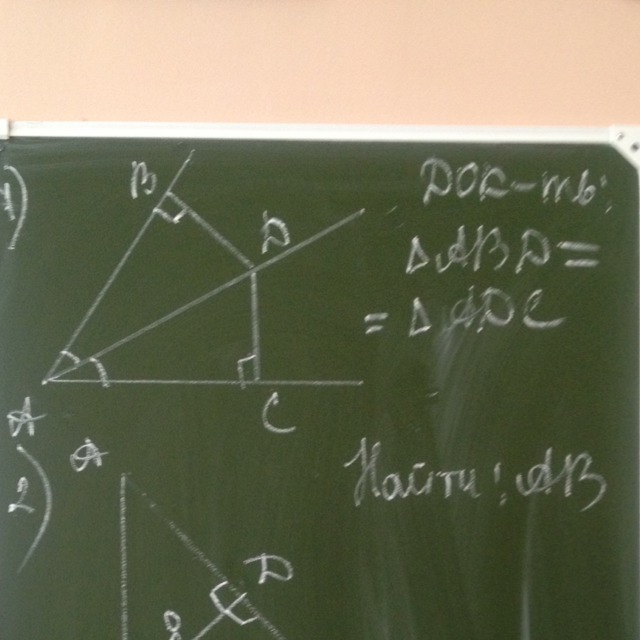 1)
B
D
Док-ть:
△ABD =
= △ADC
A
C
2)
A
Найти: AB
D
8